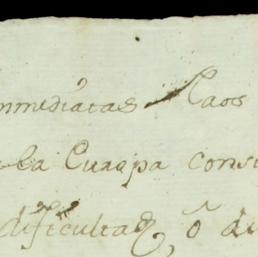 inmediatas
la Europa consi
dificultad, ô de